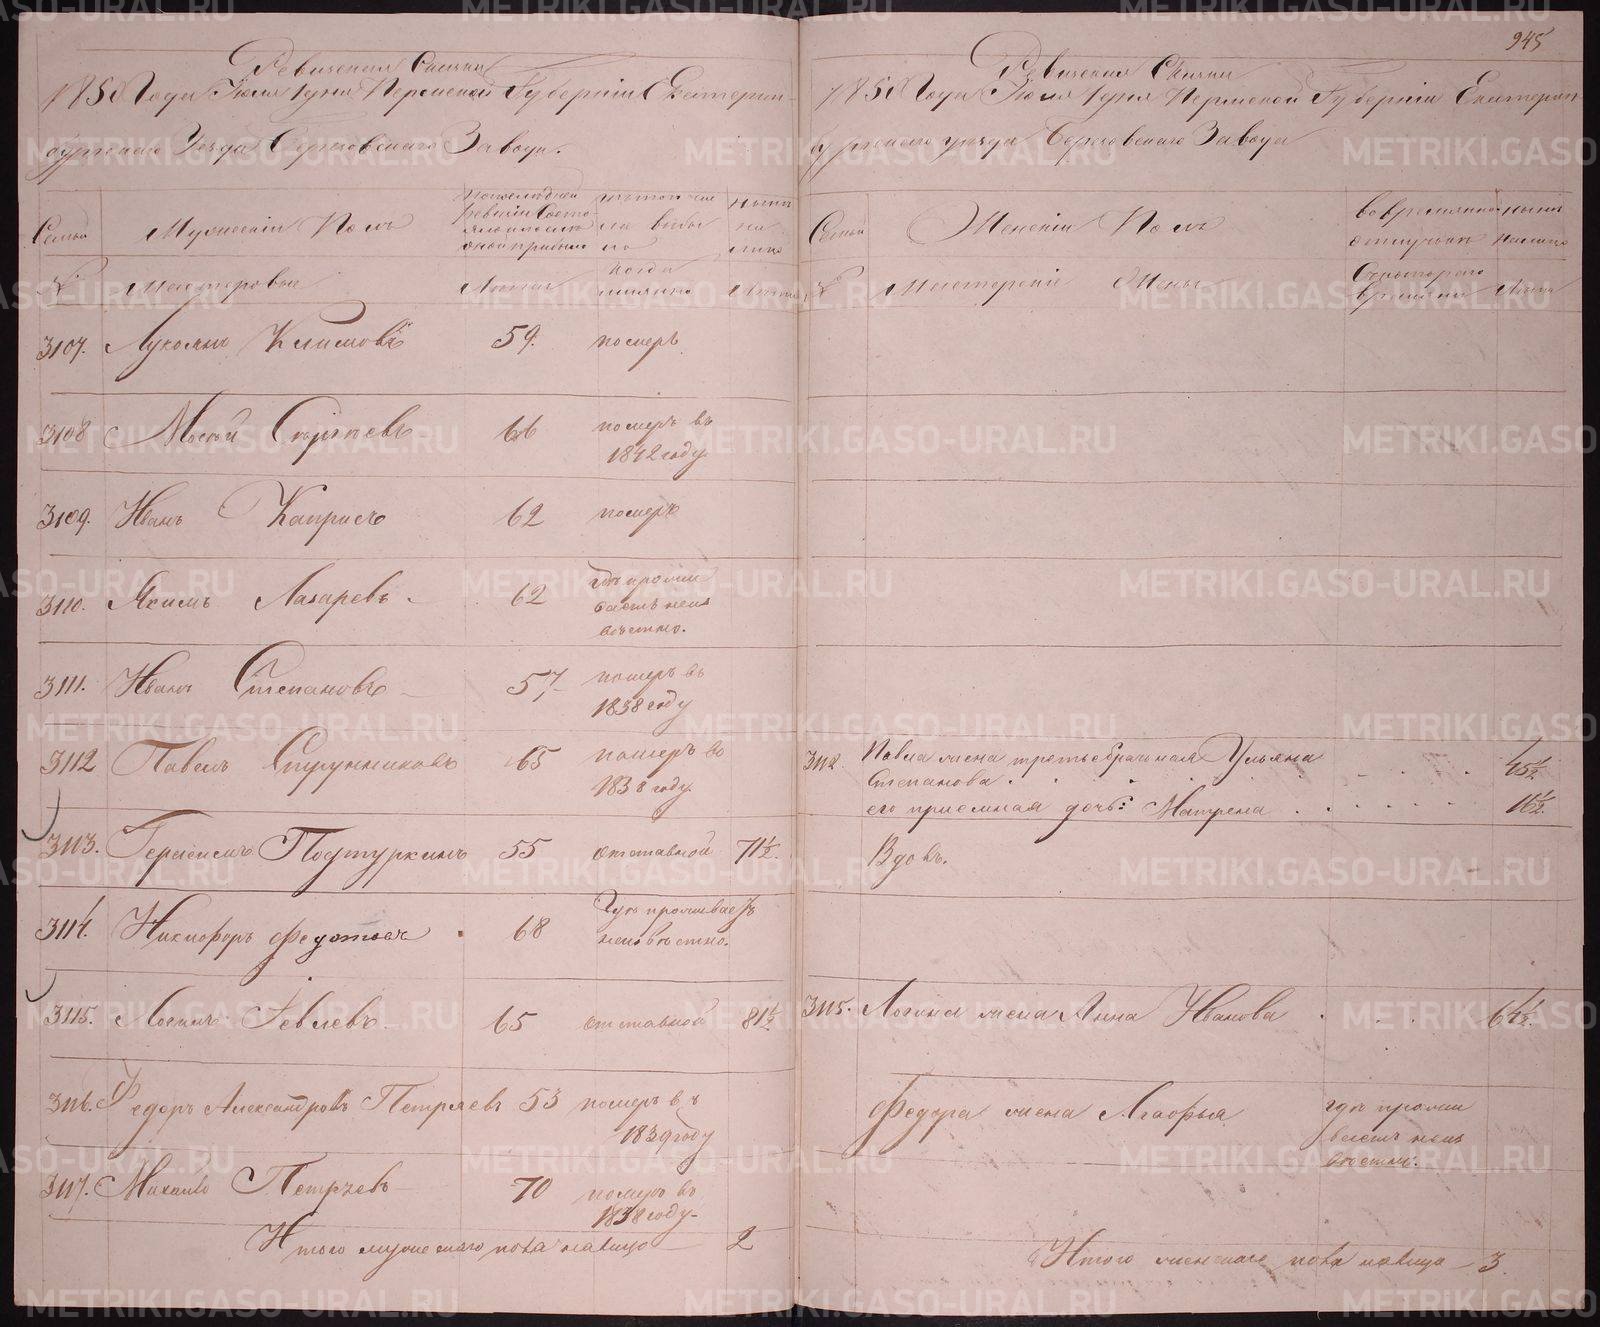 945
Ревизская Сказка
1850 Года Июля 1 дня Пермской Губернии Екатерин-
бургского Уезда Березовского Завода.
Семьи
Мужеский Полъ
№
Мастеровые
Лета
3107. Лукоянъ Климовъ 59. померъ
3108 Мосей Сергѣевъ 66 померъ въ
1842 году.
3109. Иванъ 62 померъ
3110. Якимъ Лазаревъ 62 гдѣ прожи
ваетъ неиз
вѣстно.
3111. Иванъ Степановъ 57 померъ въ
1838 году
3112 Павелъ Струнниковъ 65 померъ въ
1838 году.
3113. Герасимъ Подтуркинъ 55 отставной 71½.
3114. Никифоръ Федотовъ 68 Гдѣ проживаетъ
неизвѣстно.
3115. Логинъ Іевлевъ 65 отставной 81½
3116. Федоръ Александровъ Петряевъ 53 померъ въ
1839 году
3117. Михайло Петряевъ 70 померъ въ
1838 году.
Итого мужескаго пола налицо 2
Ревизская Сказка
1850 Года Июля 1 дня Пермской Губернии Екатерин
бургскаго уезда Березовскаго Завода
Семьи
Женский Полъ
во временной
отлучкѣ
ныне
налицо
№
Мастерские Жены
Съ котораго
времени
Лета
3112. Павла жена третьебрачная Ульяна
Степанова 45½
его приемная дочь: Матрена 16½.
Вдовъ.
3115. Логина жена Анна Иванова 64½.
Федора жена Агафья гдѣ прожи
ваетъ неиз
вѣстно.
Итого женскаго пола налицо 3
METRIKI.GASO-URAL.RU